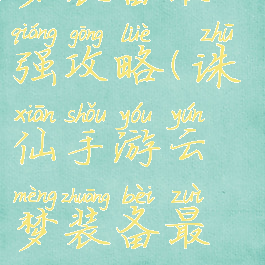 qiáng gōng lüè zhū
强攻略(诛
xiān shǒu yóu yún
仙手游云
mèng zhuāng bèi zuì
梦装备最